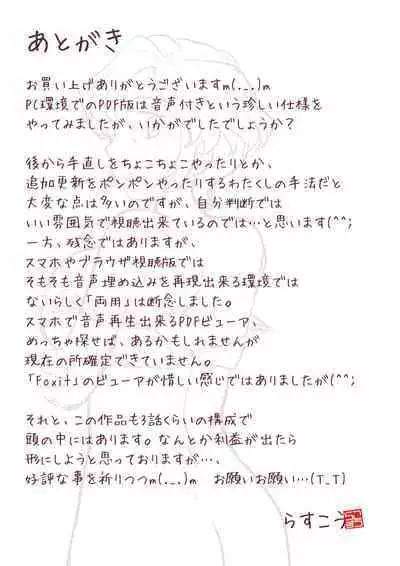 あとがき
お買い上げありがとうございますm(._.)m
PC環境でのPDF版は音声付きという珍しい仕様を
やってみましたが、いかがでしたでしょうか?
後から手直しをちょこちょこやったりとか、
追加更新をポンポンやったりするわたくしの手法だと
大変な点は多いのですが、自分判断では
いい雰囲気で視聴出来ているのでは…と思います(^^;
一方、残念ではありますが、
スマホやブラウザ視聴版では
そもそも音声埋め込みを再現出来る環境では
ないらしく「両用」は断念しました。
スマホで音声再生出来るPDFビューア、
めっちゃ探せば、あるかもしれませんが
現在の所確定できていません。
「Foxit」のビューアが惜しい感じではありましたが(^^;
それと、この作品も3話くらいの構成で
頭の中にはあります。なんとか利益が出たら
形にしようと思っておりますが…、
好評な事を祈りつつm(._.)m お願いお願い…(T_T)
らすこう